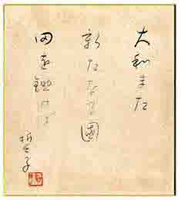 大和また
新たなる國
田を鋤けば